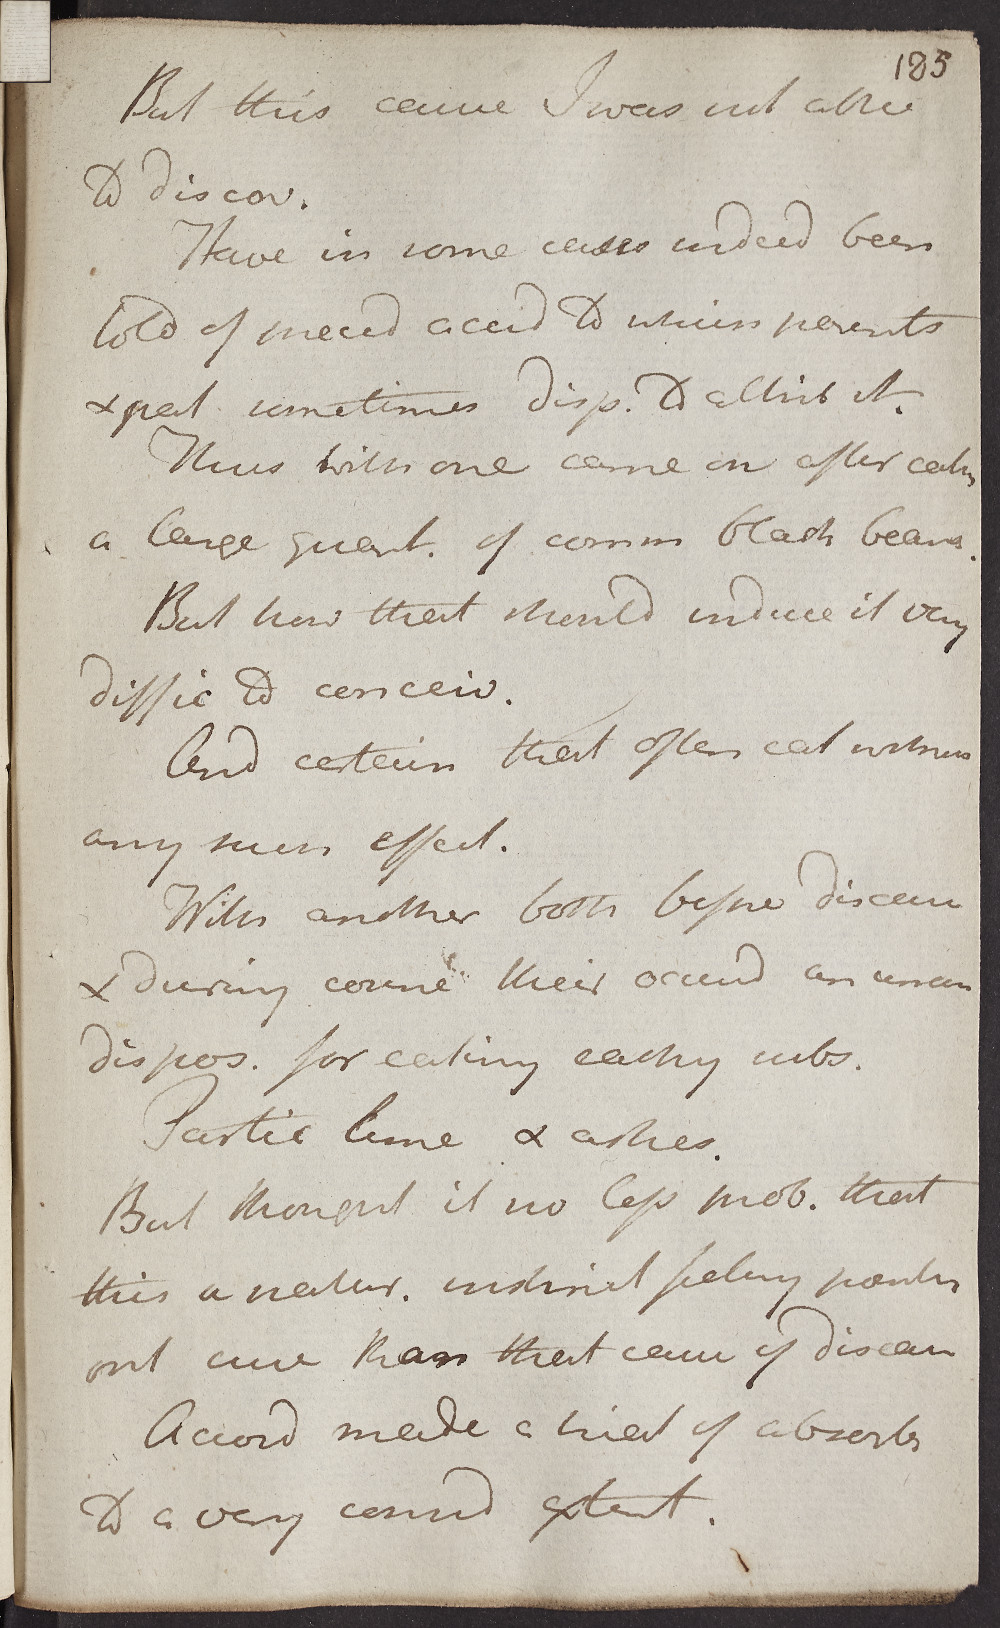 185
But this cause I was not able
to discov.
Have in some cases indeed been
told of preced accid to which parents
& pat sometimes disp. to attrib it.
Thus with one came on after eatin
a large quant. of comm black beans.
But how that should induce it very
diffic to conceiv.
And certain that often eat without
any such effect.
With another both before disease
& during course their occurrd an uncom
dispos. for eating earthy subs.
Partic lime & ashes.
But thought it no less prob. that
this a natur. instinct feeling pointin
out cure than that cause of disease
Accord made a trial of absorbs
to a very consid extent.